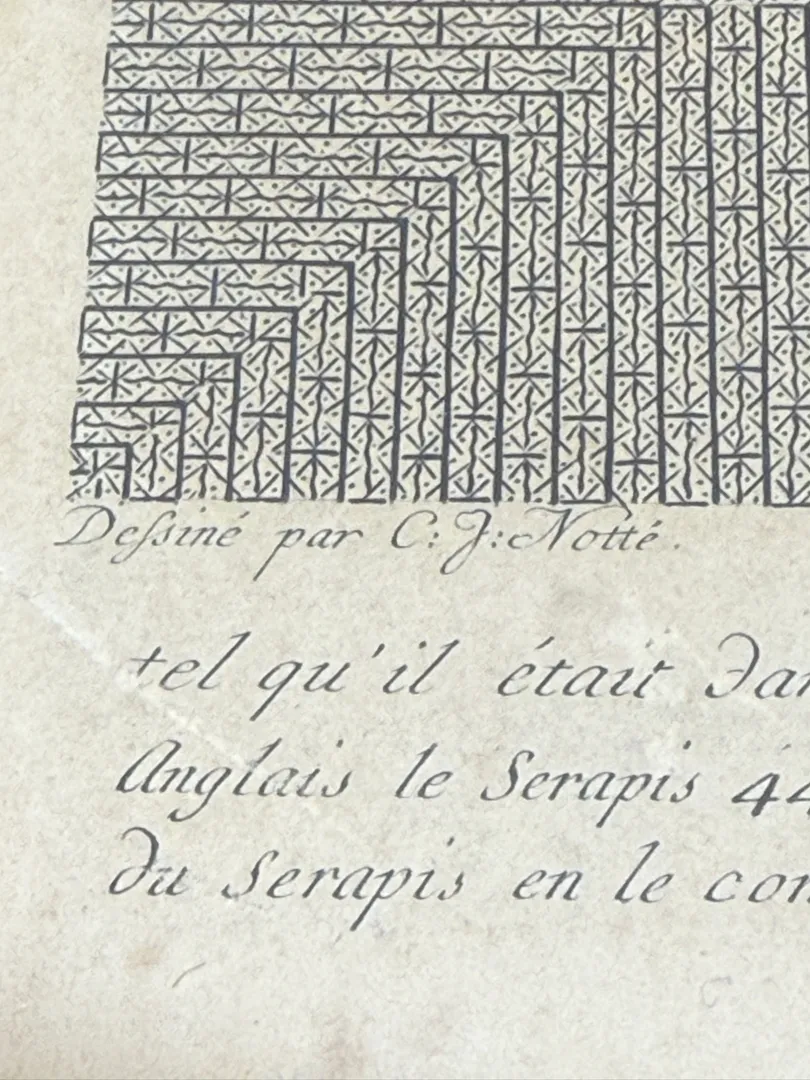 Dessiné par C: J: Notté.
tel qu'il était dan
Anglais le Serapis 44
du Serapis en le con